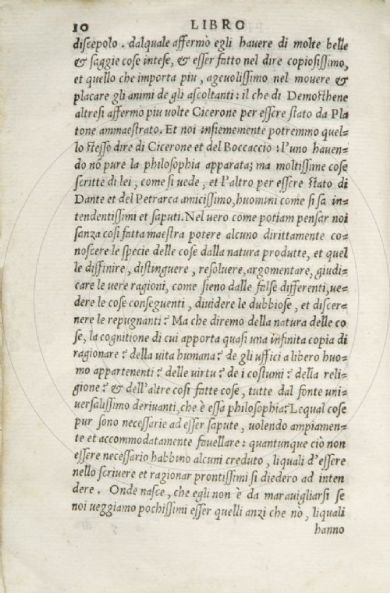 10 LIBRO
discepolo. dalquale affermò egli hauere di molte belle
& saggie cose intese, & esser fatto nel dire copiosissimo,
et quello che importa piu, ageuolissimo nel mouere &
placare gli animi de gli ascoltanti: il che di Demosthene
altresi affermo piu uolte Cicerone per essere stato da Pla
tone ammaestrato. Et noi insiememente potremmo quel=
lo stesso dire di Cicerone et del Boccaccio: l'uno hauen=
do nō pure la philosophia apparata; ma moltissime cose
scritte di lei, come si uede, et l'altro per essere stato di
Dante et del Petrarca amicissimo, huomini come si sa in=
tendentissimi et saputi. Nel uero come potiam pensar noi
sanza cosi fatta maestra potere alcuno dirittamente co=
noscere le specie delle cose dalla natura produtte, et quel
le diffinire, distinguere, resoluere, argomentare, giudi=
care le uere ragioni, come sieno dalle false differenti, ue=
dere le cose conseguenti, diuidere le dubbiose, et discer=
nere le repugnanti? Ma che diremo della natura delle co
se, la cognitione di cui apporta quasi una infinita copia di
ragionare? della uita humana? de gli uffici a libero huo=
mo appartenenti? delle uirtu? de i costumi? della reli=
gione? & dell'altre cosi fatte cose, tutte dal fonte uni=
uersalissimo deriuanti, che è essa philosophia? Lequal cose
pur sono necessarie ad esser sapute, uolendo ampiamen=
te et accommodatamente fauellare: quantunque ciò non
essere necessario habbino alcuni creduto, liquali d'essere
nello scriuere et ragionar prontissimi si diedero ad inten
dere. Onde nasce, che egli non è da marauigliarsi se
noi ueggiamo pochissimi esser quelli anzi che nò, liquali
hanno